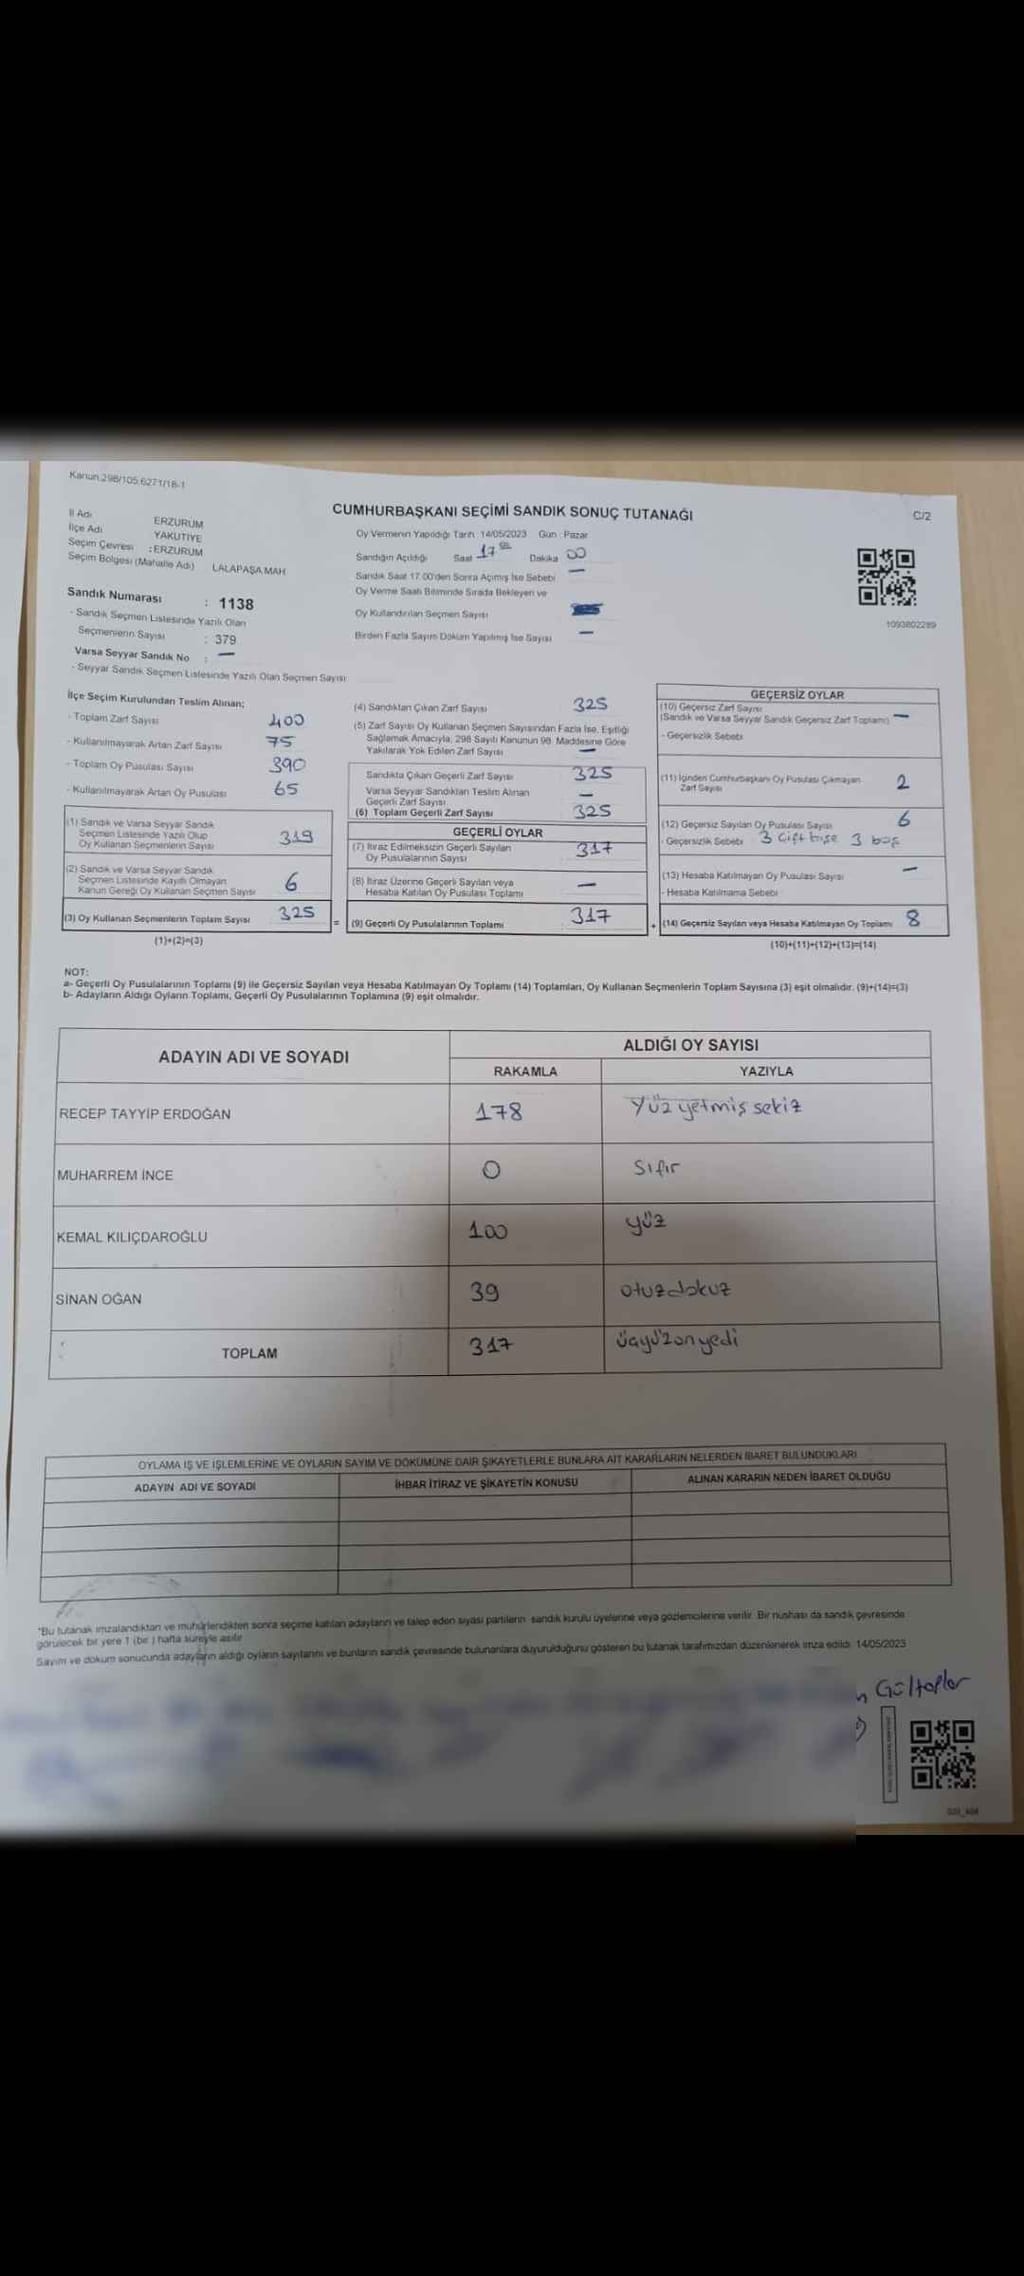 Kanun.298/105.6271/18-1
CUMHURBAŞKANI SEÇİMİ SANDIK SONUÇ TUTANAĞI
C/2
İl Adı ERZURUM
İlçe Adı YAKUTİYE
Seçim Çevresi : ERZURUM
Seçim Bölgesi (Mahalle Adı) LALAPAŞA MAH
Sandık Numarası : 1138
- Sandık Seçmen Listesinde Yazılı Olan
Seçmenlerin Sayısı : 379
Varsa Seyyar Sandık No : —
- Seyyar Sandık Seçmen Listesinde Yazılı Olan Seçmen Sayısı
Oy Vermenin Yapıldığı Tarih 14/05/2023 Gün : Pazar
Sandığın Açıldığı Saat 17 00 Dakika 00
Sandık Saat 17.00'den Sonra Açılmış İse Sebebi —
Oy Verme Saati Bitiminde Sırada Bekleyen ve
Oy Kullandırılan Seçmen Sayısı
Birden Fazla Sayım Döküm Yapılmış İse Sayısı —
1093802289
İlçe Seçim Kurulundan Teslim Alınan;
- Toplam Zarf Sayısı 400
- Kullanılmayarak Artan Zarf Sayısı 75
- Toplam Oy Pusulası Sayısı 390
- Kullanılmayarak Artan Oy Pusulası 65
(1) Sandık ve Varsa Seyyar Sandık
Seçmen Listesinde Yazılı Olup
Oy Kullanan Seçmenlerin Sayısı 319
(2) Sandık ve Varsa Seyyar Sandık
Seçmen Listesinde Kayıtlı Olmayan
Kanun Gereği Oy Kullanan Seçmen Sayısı 6
(3) Oy Kullanan Seçmenlerin Toplam Sayısı 325 =
(1)+(2)=(3)
(4) Sandıktan Çıkan Zarf Sayısı 325
(5) Zarf Sayısı Oy Kullanan Seçmen Sayısından Fazla İse, Eşitliği
Sağlamak Amacıyla, 298 Sayılı Kanunun 98. Maddesine Göre
Yakılarak Yok Edilen Zarf Sayısı —
Sandıkta Çıkan Geçerli Zarf Sayısı 325
Varsa Seyyar Sandıktan Teslim Alınan
Geçerli Zarf Sayısı —
(6) Toplam Geçerli Zarf Sayısı 325
GEÇERLİ OYLAR
(7) İtiraz Edilmeksizin Geçerli Sayılan
Oy Pusulalarının Sayısı 317
(8) İtiraz Üzerine Geçerli Sayılan veya
Hesaba Katılan Oy Pusulası Toplamı —
(9) Geçerli Oy Pusulalarının Toplamı 317 +
GEÇERSİZ OYLAR
(10) Geçersiz Zarf Sayısı
(Sandık ve Varsa Seyyar Sandık Geçersiz Zarf Toplamı) —
- Geçersizlik Sebebi
(11) İçinden Cumhurbaşkanı Oy Pusulası Çıkmayan
Zarf Sayısı 2
(12) Geçersiz Sayılan Oy Pusulası Sayısı 6
- Geçersizlik Sebebi 3 çift 3 boş
(13) Hesaba Katılmayan Oy Pusulası Sayısı —
- Hesaba Katılmama Sebebi
(14) Geçersiz Sayılan veya Hesaba Katılmayan Oy Toplamı 8
(10)+(11)+(12)+(13)=(14)
NOT:
a- Geçerli Oy Pusulalarının Toplamı (9) ile Geçersiz Sayılan veya Hesaba Katılmayan Oy Toplamı (14) Toplamları, Oy Kullanan Seçmenlerin Toplam Sayısına (3) eşit olmalıdır. (9)+(14)=(3)
b- Adayların Aldığı Oyların Toplamı, Geçerli Oy Pusulalarının Toplamına (9) eşit olmalıdır.
ADAYIN ADI VE SOYADI
ALDIĞI OY SAYISI
RAKAMLA YAZIYLA
RECEP TAYYİP ERDOĞAN 178 Yüz yetmiş sekiz
MUHARREM İNCE 0 Sıfır
KEMAL KILIÇDAROĞLU 100 yüz
SİNAN OĞAN 39 otuzdokuz
TOPLAM 317 üçyüzonyedi
OYLAMA İŞ VE İŞLEMLERİNE VE OYLARIN SAYIM VE DÖKÜMÜNE DAİR ŞİKAYETLERLE BUNLARA AİT KARARLARIN NELERDEN İBARET BULUNDUKLARI
ADAYIN ADI VE SOYADI İHBAR İTİRAZ VE ŞİKAYETİN KONUSU ALINAN KARARIN NEDEN İBARET OLDUĞU
*Bu tutanak imzalandıktan ve mühürlendikten sonra seçime katılan adayların ve talep eden siyasi partilerin sandık kurulu üyelerine veya gözlemcilerine verilir. Bir nüshası da sandık çevresinde
görülecek bir yere 1 (bir) hafta süreyle asılır
Sayım ve döküm sonucunda adayların aldığı oyların sayılarını ve bunların sandık çevresinde bulunanlara duyurulduğunu gösteren bu tutanak tarafımızdan düzenlenerek imza edildi. 14/05/2023
n Gültopler